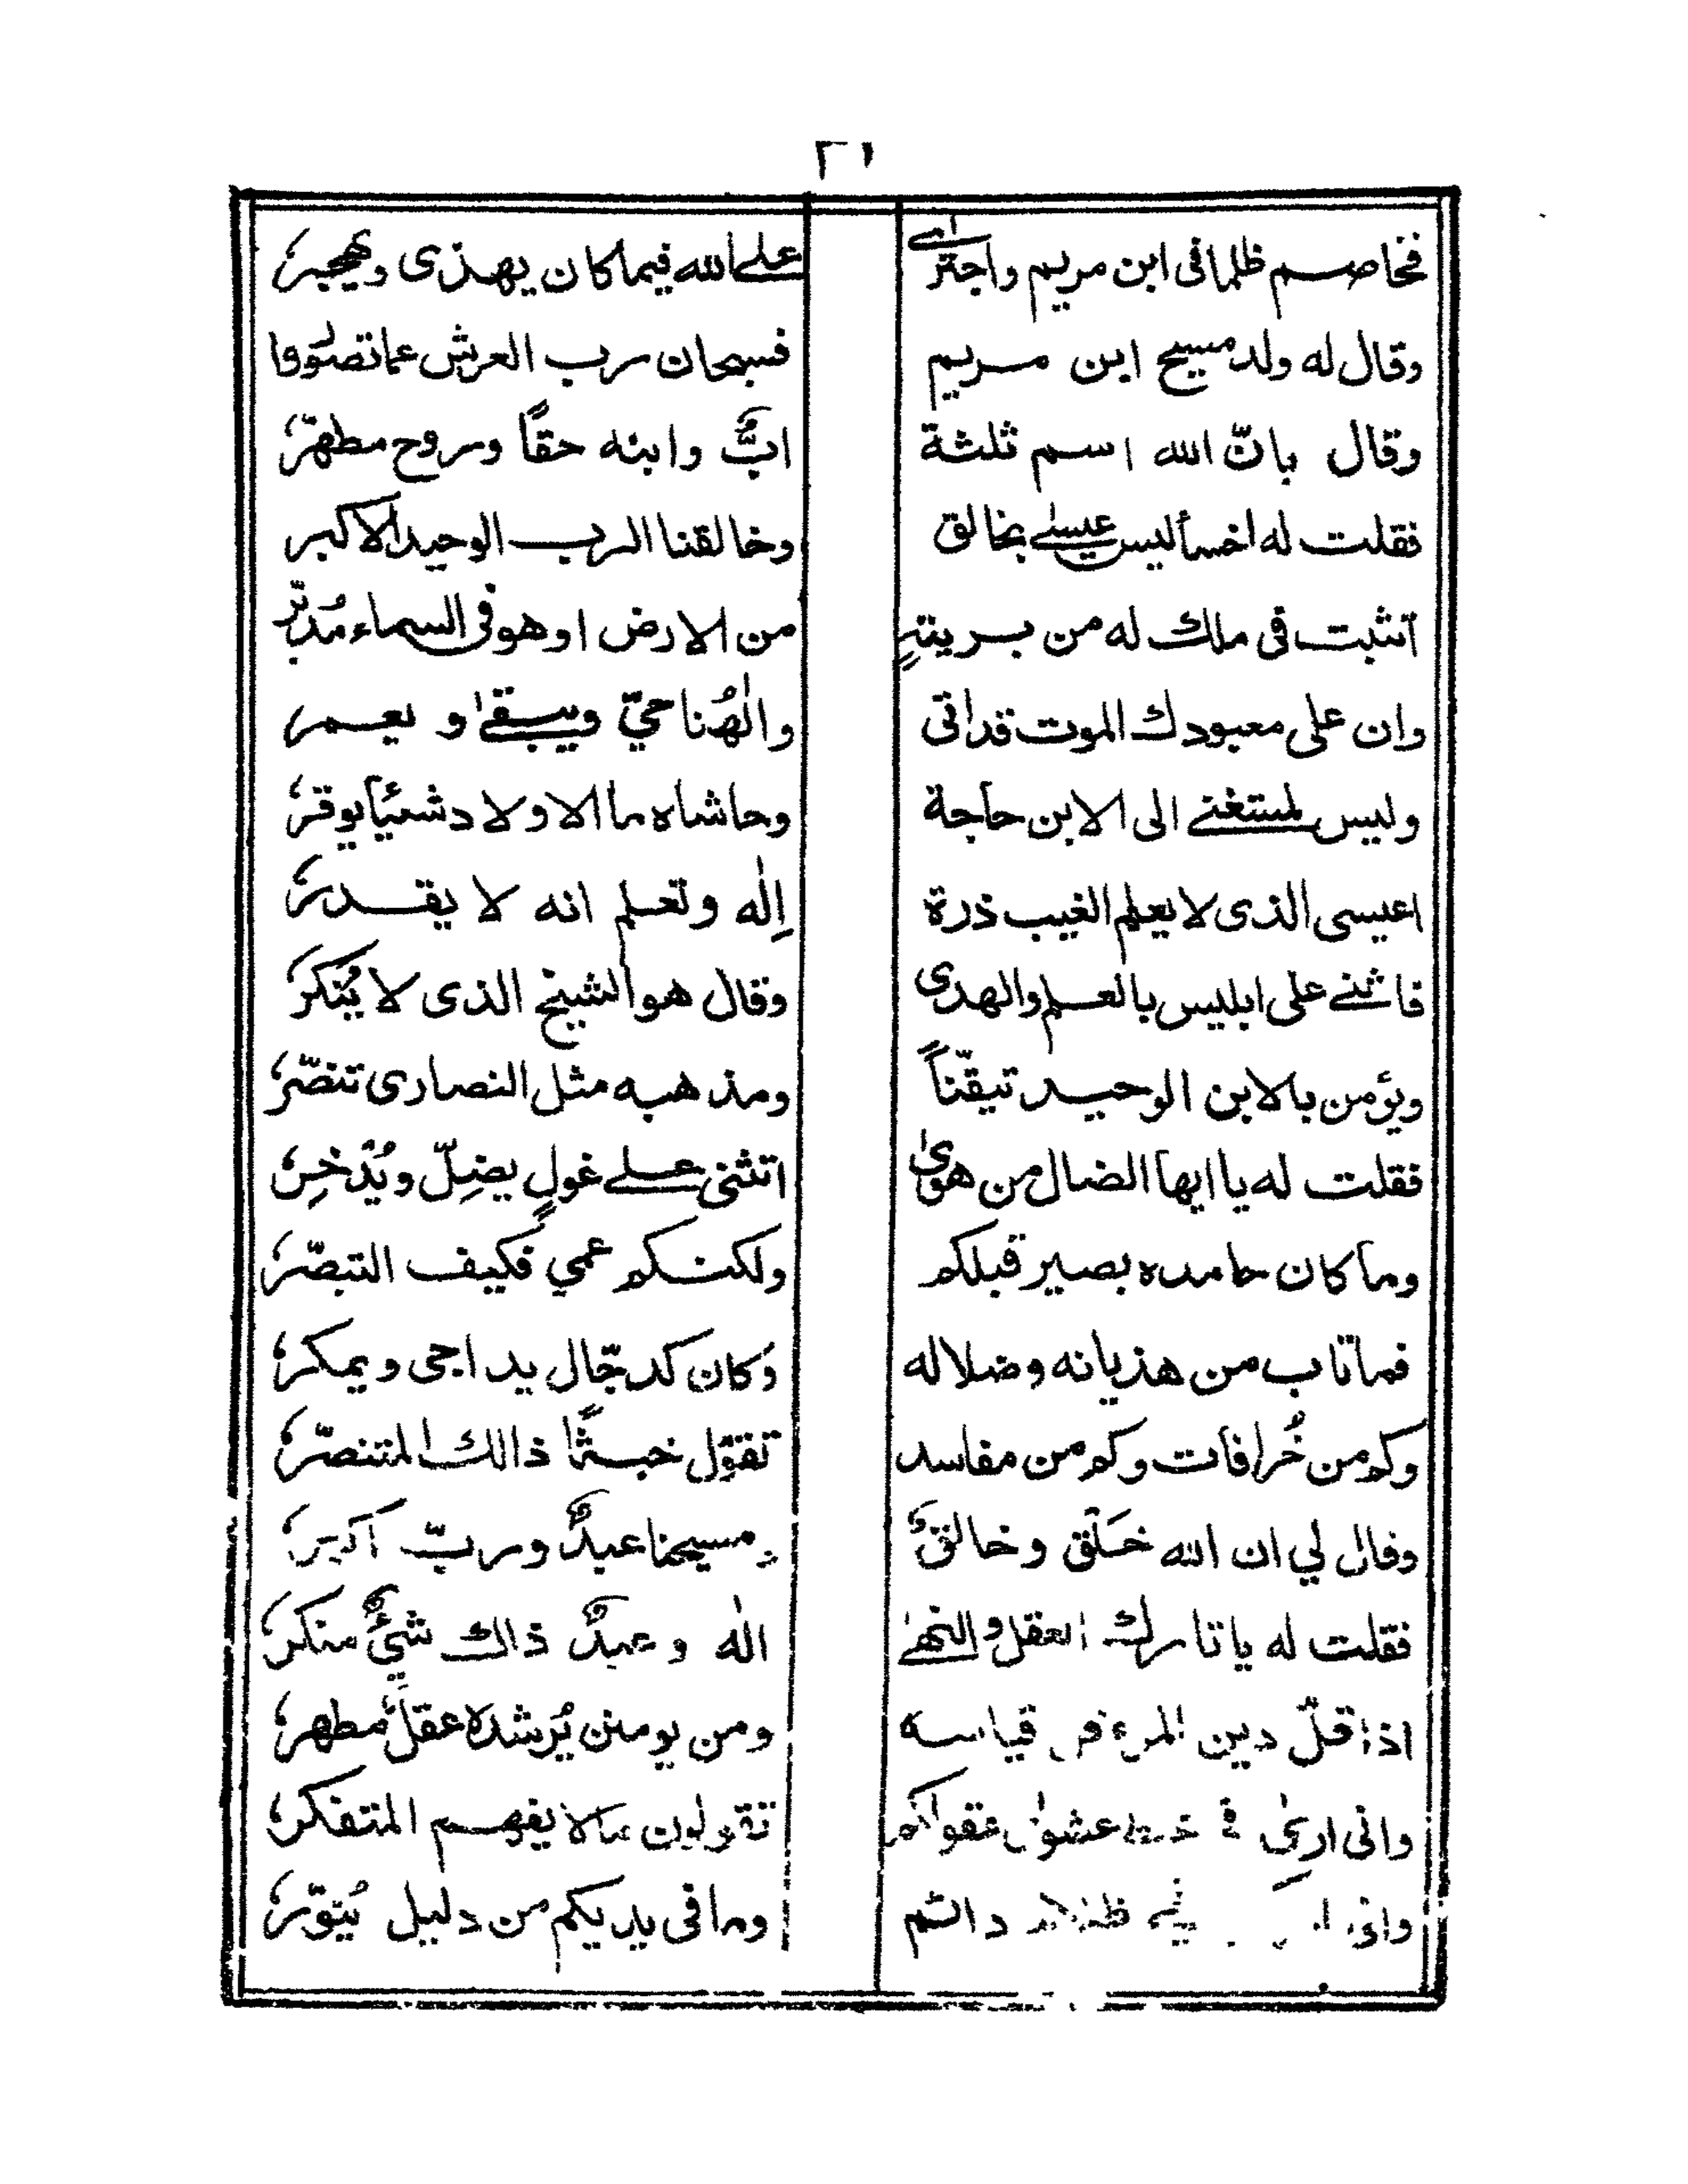 ٢١
فخاصم ظلما فى ابن مريم واجترأى على الله فيما كان يهذى ويهجر
وقال له ولد مسيح ابن مريم فسبحان رب العرش عما تصوروا
وقال بانّ الله اسم ثلثة ابٌّ وابنه حقاً وروح مطهّر
فقلت له اخسأ اليس عيسى بخالق وخالقنا الرب الوحيد الاكبر
اتثبت فى ملك له من بريتهٍ من الارض او هو فى السماء مُدبّر
وان على معبودك الموت قد اتى والٰهُنا حيّ ويبقىٰ و يعمر
وليس لمستغنى الى الابن حاجة وحاشاه ما الاولاد شئياً يوقر
اعيسى الذى لا يعلم الغيب ذرة اِلٰه وتعلم انه لا يقدر
فاثنى على ابليس بالعلم والهدى وقال هو الشيخ الذى لا يُنكر
ويؤمن بالابن الوحيد تيقّناً ومذهبه مثل النصارى تنصّر
فقلت له يا ايها الضال من هوىٰ اتثنى على غولٍ يضِلّ ويُدْخِر
وما كان حامده بصير قبلكم ولكنكم عمي فكيف التبصّر
فما تاب من هذيانه وضلاله وكان كدجّال يداجى ويمكر
وكم من خُرافات وكم من مفاسد تقوّل خبثًا ذالك المتنصّر
وقال لي ان الله خَلْق وخالقٌ مسيحنا عبدٌ وربّ اكبر
فقلت له يا تارك العقل والنهىٰ الٰه وعبدٌ ذالك شيءٌ منكر
اذا قلّ دين المرء قل قياسه ومن يومنن يُرشده عقلٌ مطهر
وانى ارىٰ فى عشواء عقولكم تقولون مالا يفهم المتفكر
دائم وما فى يديكم من دليل يُنوّر